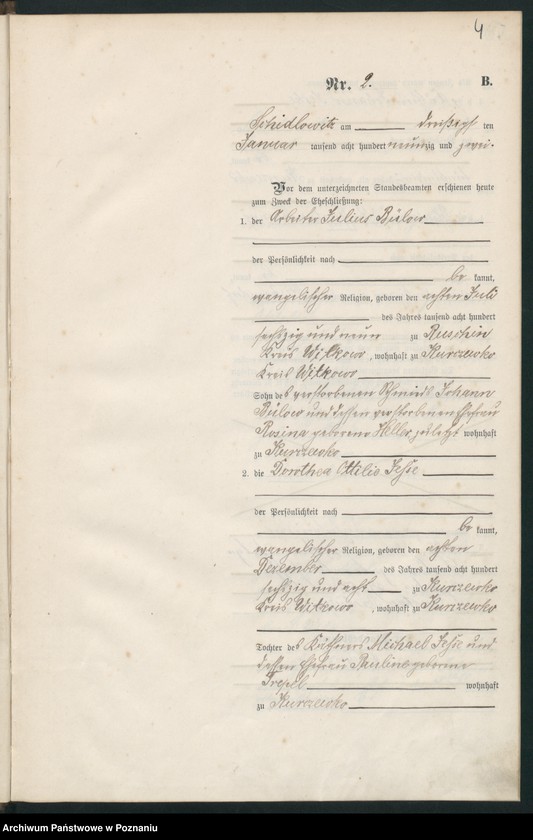 4
Nr. 2.
B.
Schidlowitz am dreißigsten
Januar tausend acht hundert neunzig und zwei.
Vor dem unterzeichneten Standesbeamten erschienen heute
zum Zweck der Eheschließung:
1. der Arbeiter Julius Bülow
der Persönlichkeit nach
be kannt,
evangelischer Religion, geboren den achten Juli
des Jahres tausend acht hundert
sechszig und neun zu Ruschin
Kreis Witkowo, wohnhaft zu Kurzewko
Kreis Witkowo
Sohn des verstorbenen Schmieds Johann
Bülow und dessen verstorbenen Ehefrau
Rosina geborene Heller, zuletzt wohnhaft
zu Kurzewko
2. die Dorothea Ottilie Jesse
der Persönlichkeit nach
be kannt,
evangelischer Religion, geboren den achten
Dezember des Jahres tausend acht hundert
sechszig und acht zu Kurzewko
Kreis Witkowo, wohnhaft zu Kurzewko
Tochter des Michael Jesse und
dessen Ehefrau Pauline geborene
wohnhaft
zu Kurzewko
Archiwum Państwowe w Poznaniu